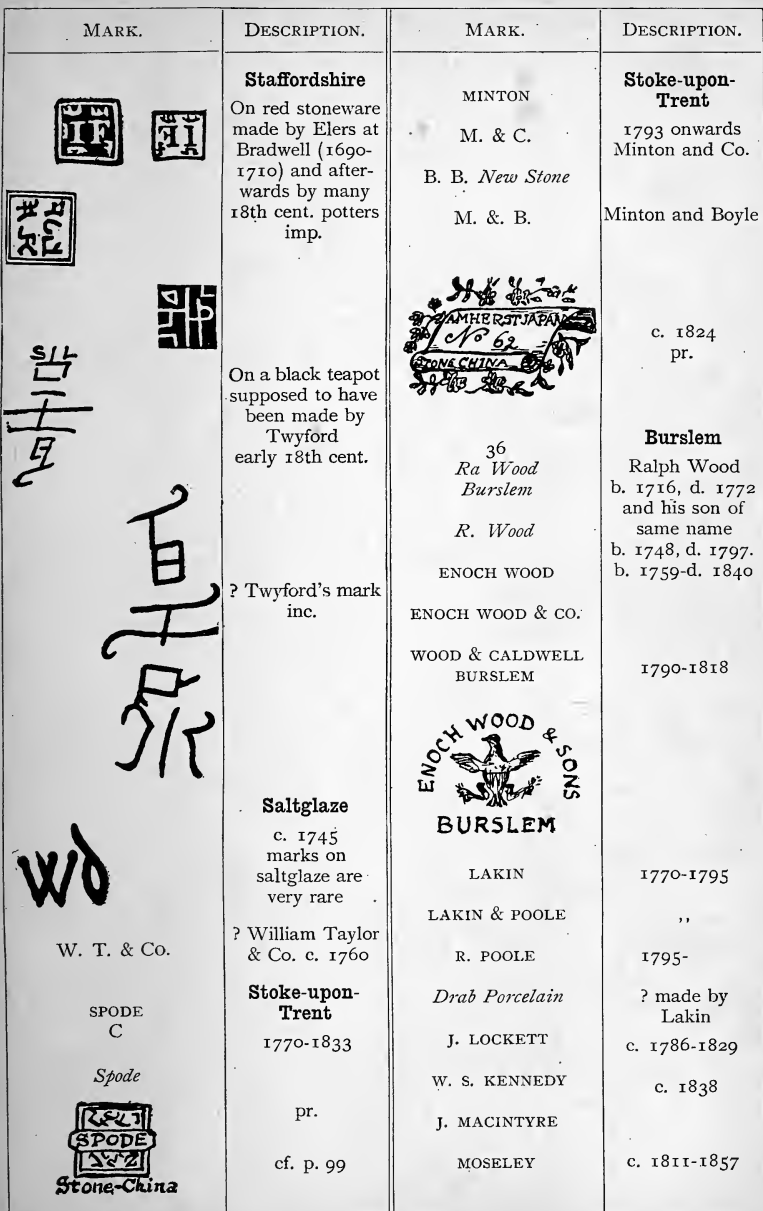 MARK.
DESCRIPTION.
Staffordshire
On red stoneware
made by Elers at
Bradwell (1690-
1710) and after-
wards by many
18th cent. potters
imp.
On a black teapot
supposed to have
been made by
Twyford
early 18th cent.
? Twyford's mark
inc.
Saltglaze
c. 1745
marks on
saltglaze are
very rare
W. T. & Co.
? William Taylor
& Co. c. 1760
Stoke-upon-
Trent
SPODE
C
1770-1833
Spode
pr.
SPODE
Stone-China
cf. p. 99
MARK.
DESCRIPTION.
Stoke-upon-
Trent
MINTON
M. & C.
1793 onwards
Minton and Co.
B. B. New Stone
M. &. B.
Minton and Boyle
AMHERST JAPAN
No 62
STONE CHINA
c. 1824
pr.
Burslem
36
Ra Wood
Burslem
R. Wood
Ralph Wood
b. 1716, d. 1772
and his son of
same name
b. 1748, d. 1797.
ENOCH WOOD
b. 1759-d. 1840
ENOCH WOOD & CO.
WOOD & CALDWELL
BURSLEM
1790-1818
ENOCH WOOD & SONS
BURSLEM
LAKIN
1770-1795
LAKIN & POOLE
,,
R. POOLE
1795-
Drab Porcelain
? made by
Lakin
J. LOCKETT
c. 1786-1829
W. S. KENNEDY
c. 1838
J. MACINTYRE
MOSELEY
c. 1811-1857